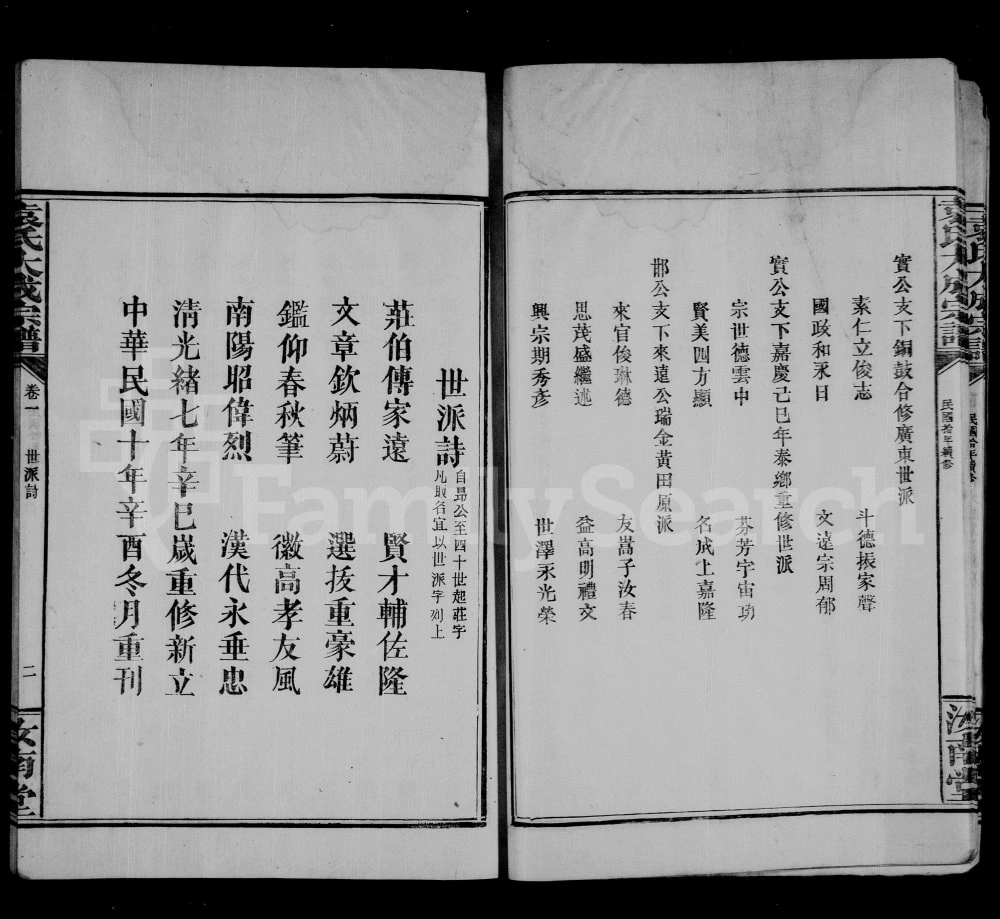 實公支下銅鼓合修廣東世派
素仁立俊志　斗德振家聲
國政和永日　文遠宗周郁
實公支下嘉慶己巳年泰鄉重修世派
宗世德雲中　芬芳宇宙功
賢美四方顯　名成上嘉隆
邯公支下來遠公瑞金黃田原派
來官俊琳德　友嵩子汝春
思茂盛繼述　益高明禮文
興宗期秀彥　世澤永光榮
民國拾年續修
汝南堂
世派詩
自昻公至四十世起莊字
凡取名宜以世派字列上
莊伯傳家遠　賢才輔佐隆
文章欽炳蔚　選拔重豪雄
鑑仰春秋筆　徽高孝友風
南陽昭偉烈　漢代永垂忠
清光緒七年辛巳歲重修新立
中華民國十年辛酉冬月重刊
袁氏大成宗譜
卷一
世派詩
二
汝南堂
FamilySearch